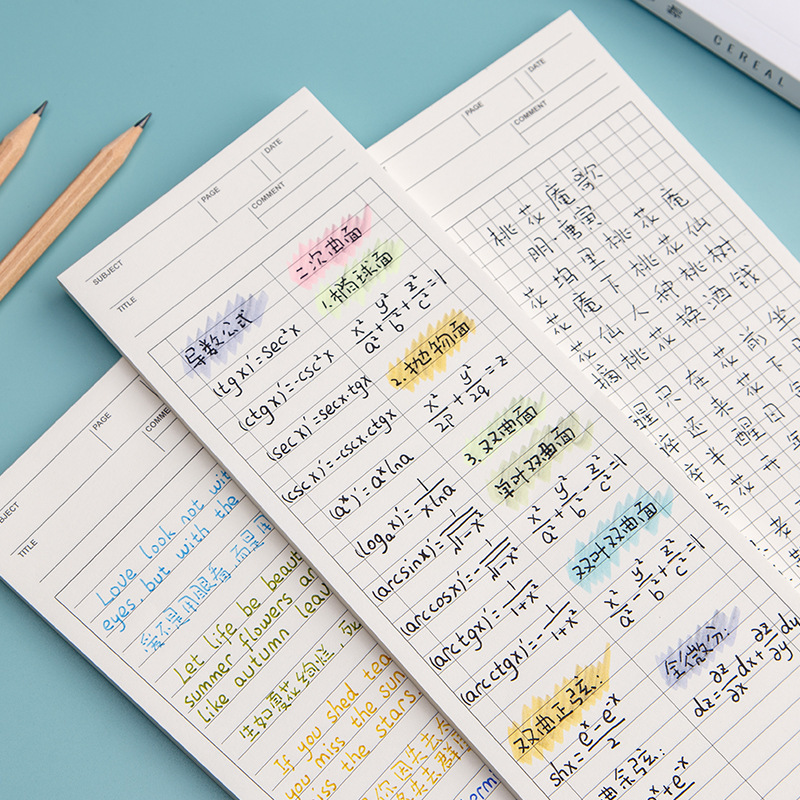 CEREAL
SUBJECT
PAGE
DATE
COMMENT
TITLE
导数公式
(tgx)'=sec²x
(ctgx)'=-csc²x
(secx)'=secx·tgx
(cscx)'=-cscx·ctgx
(aˣ)'=aˣlna
(logₐx)'=1/(xlna)
(arcsinx)'=1/√(1-x²)
(arccosx)'=-1/√(1-x²)
(arctgx)'=1/(1+x²)
(arcctgx)'=-1/(1+x²)
双曲正弦:
shx=(eˣ-e⁻ˣ)/2
曲余弦:
二次曲面
1.椭球面
x²/a²+y²/b²+z²/c²=1
2.抛物面
x²/2p+y²/2q=z
3.双曲面
单叶双曲面
x²/a²+y²/b²-z²/c²=1
双叶双曲面
x²/a²-y²/b²+z²/c²=1
全微分:
dz=∂z/∂x dx+∂z/∂y dy
PAGE
DATE
COMMENT
桃花庵歌
明·唐寅
花坞里桃花庵
花庵下桃花仙
花仙人种桃树
摘桃花换酒钱
醒只在花前坐
还来花下
半醒日
花开
JECT
PAGE
COMME
TITLE
Love look not wit
eyes, but with the
爱不是用眼看,而是用
Let life be beaut
summer flowers an
like autumn leav
生如夏花绚烂,死
If you shed tea
you miss the sun
miss the stars
你因失去太
失去群
ermi